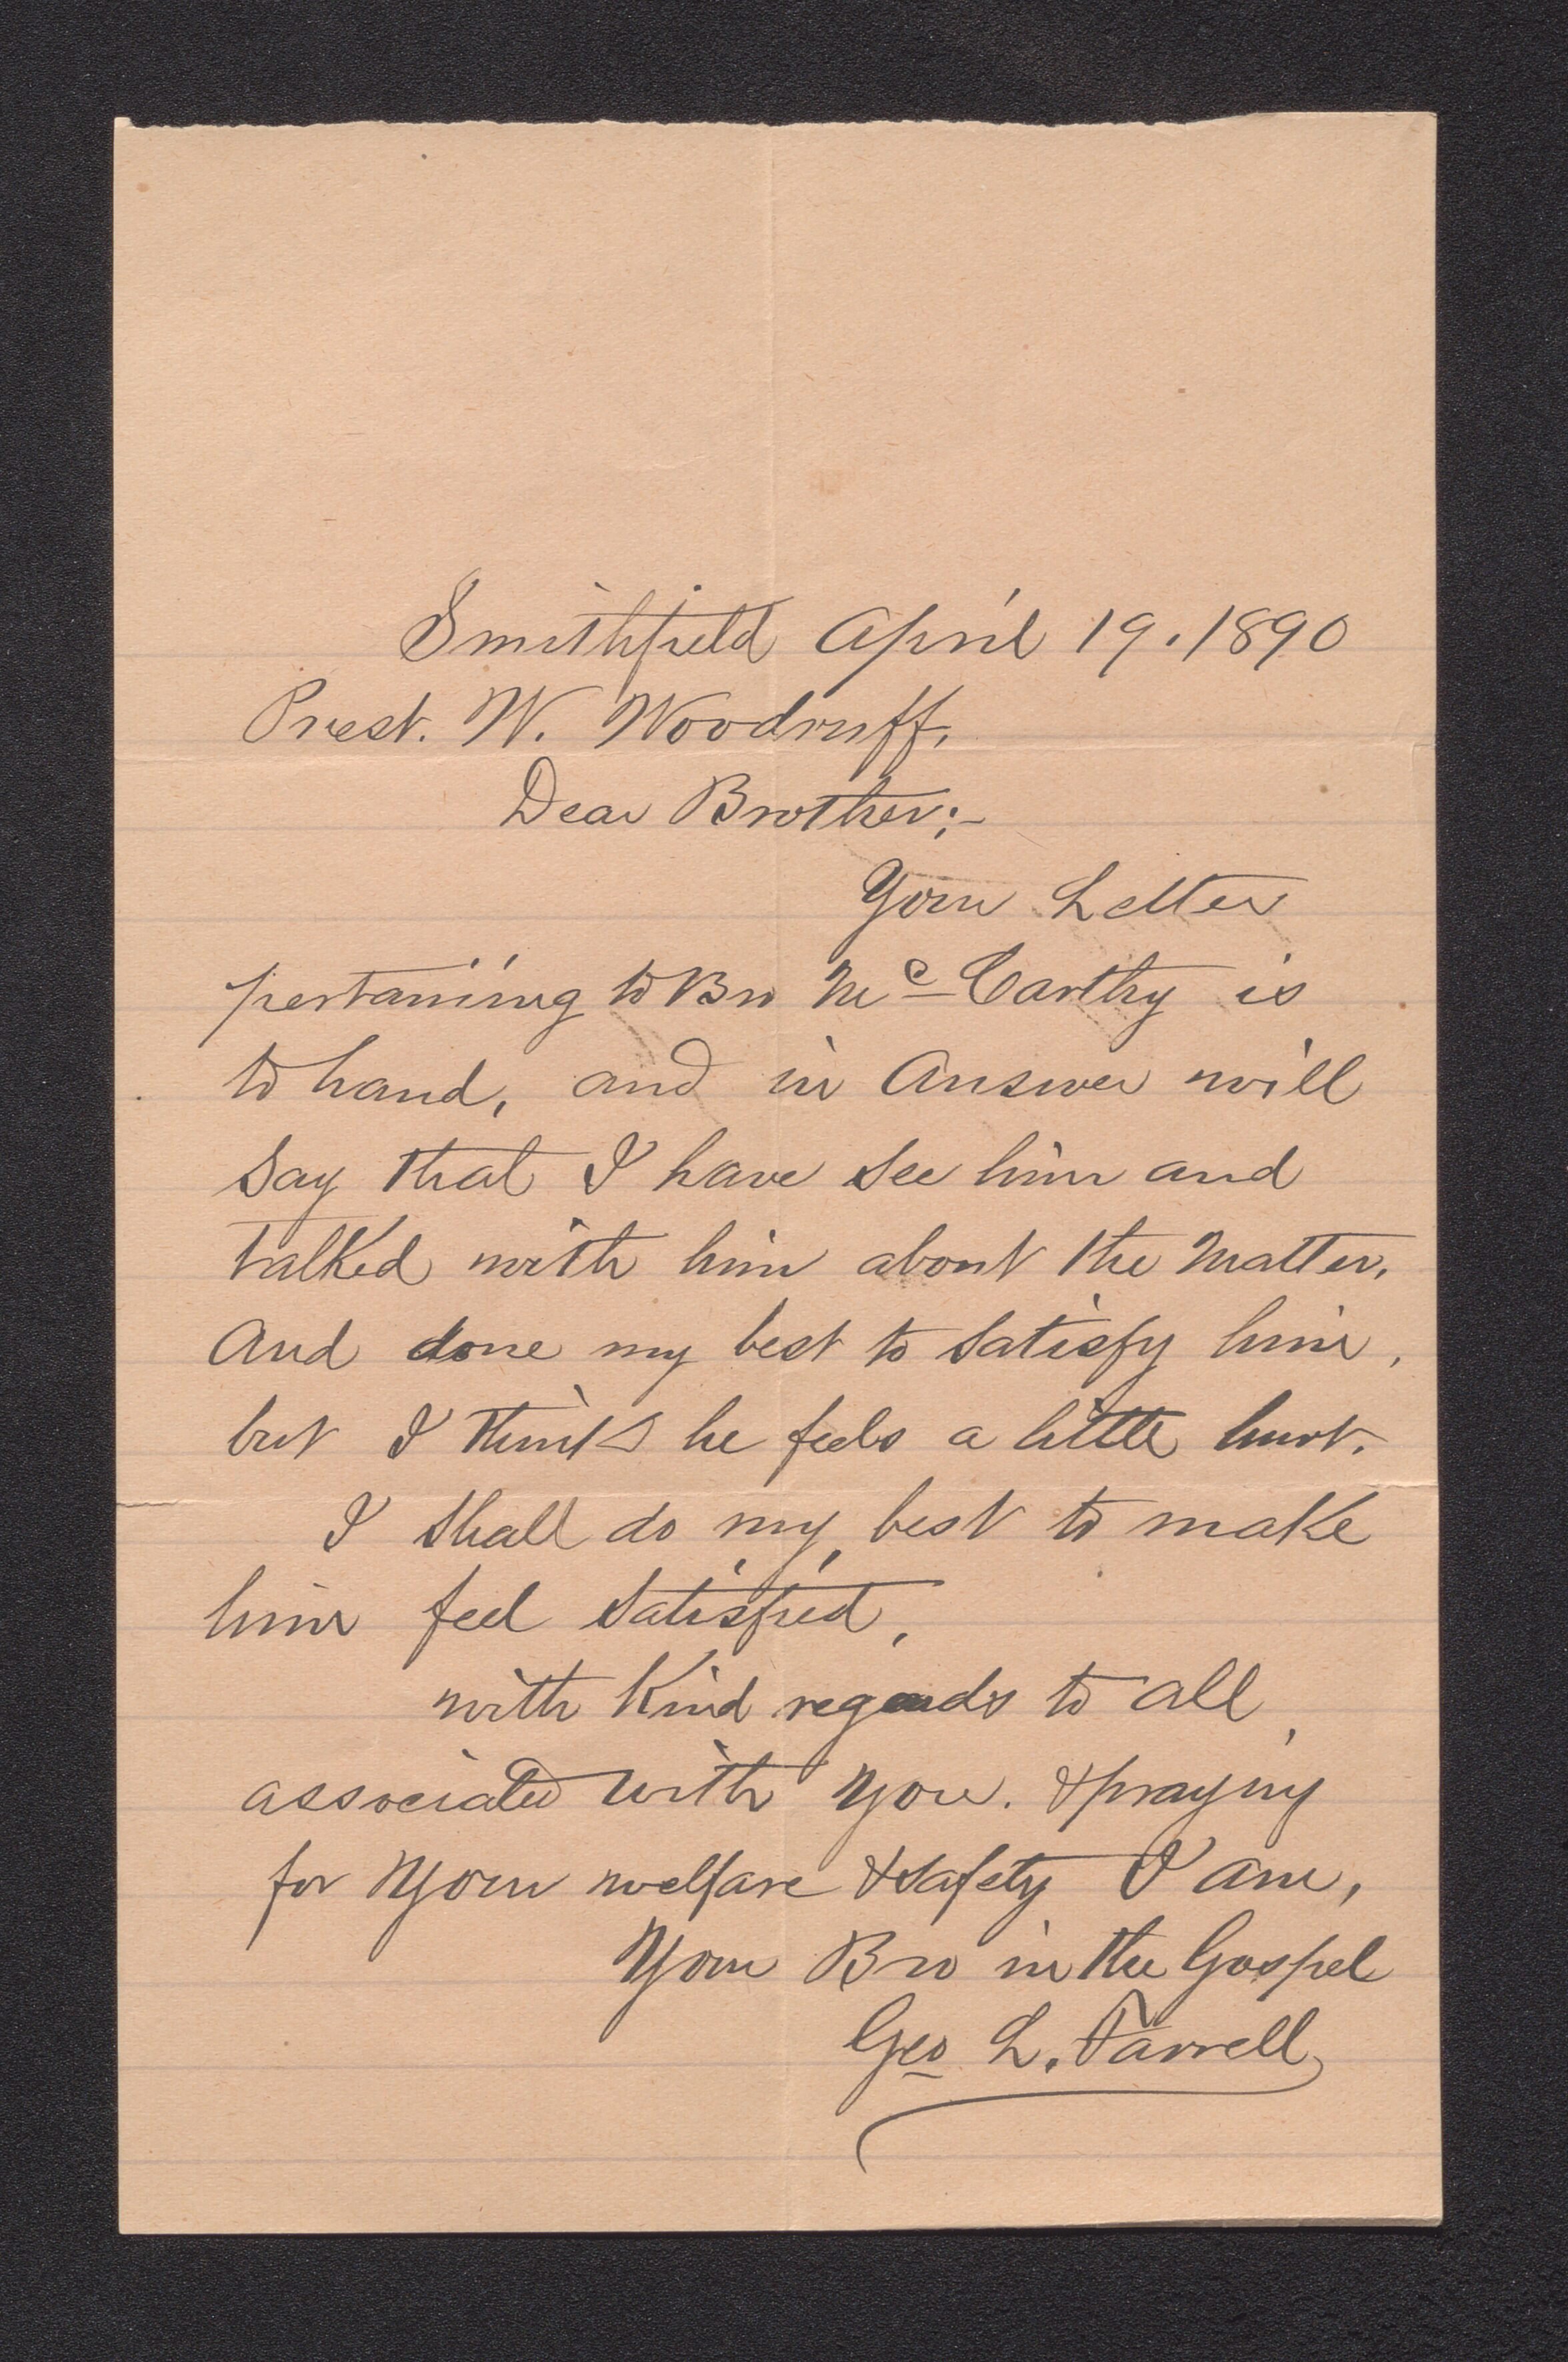 Smithfield April 19. 1890
Prest. W. Woodruff,
Dear Brother;-
Your Letter
pertaining to Bro Mc Carthy is
to hand, and in Answer will
Say that I have See him and
talked with him about the Matter,
And done my best to Satisfy him,
but I think he feels a little hurt.
I Shall do my best to make
him feel Satisfied,
with Kind regards to all
associated with you. & praying
for Your welfare & Safety I am,
Your Bro in the Gospel
Geo L. Farrell